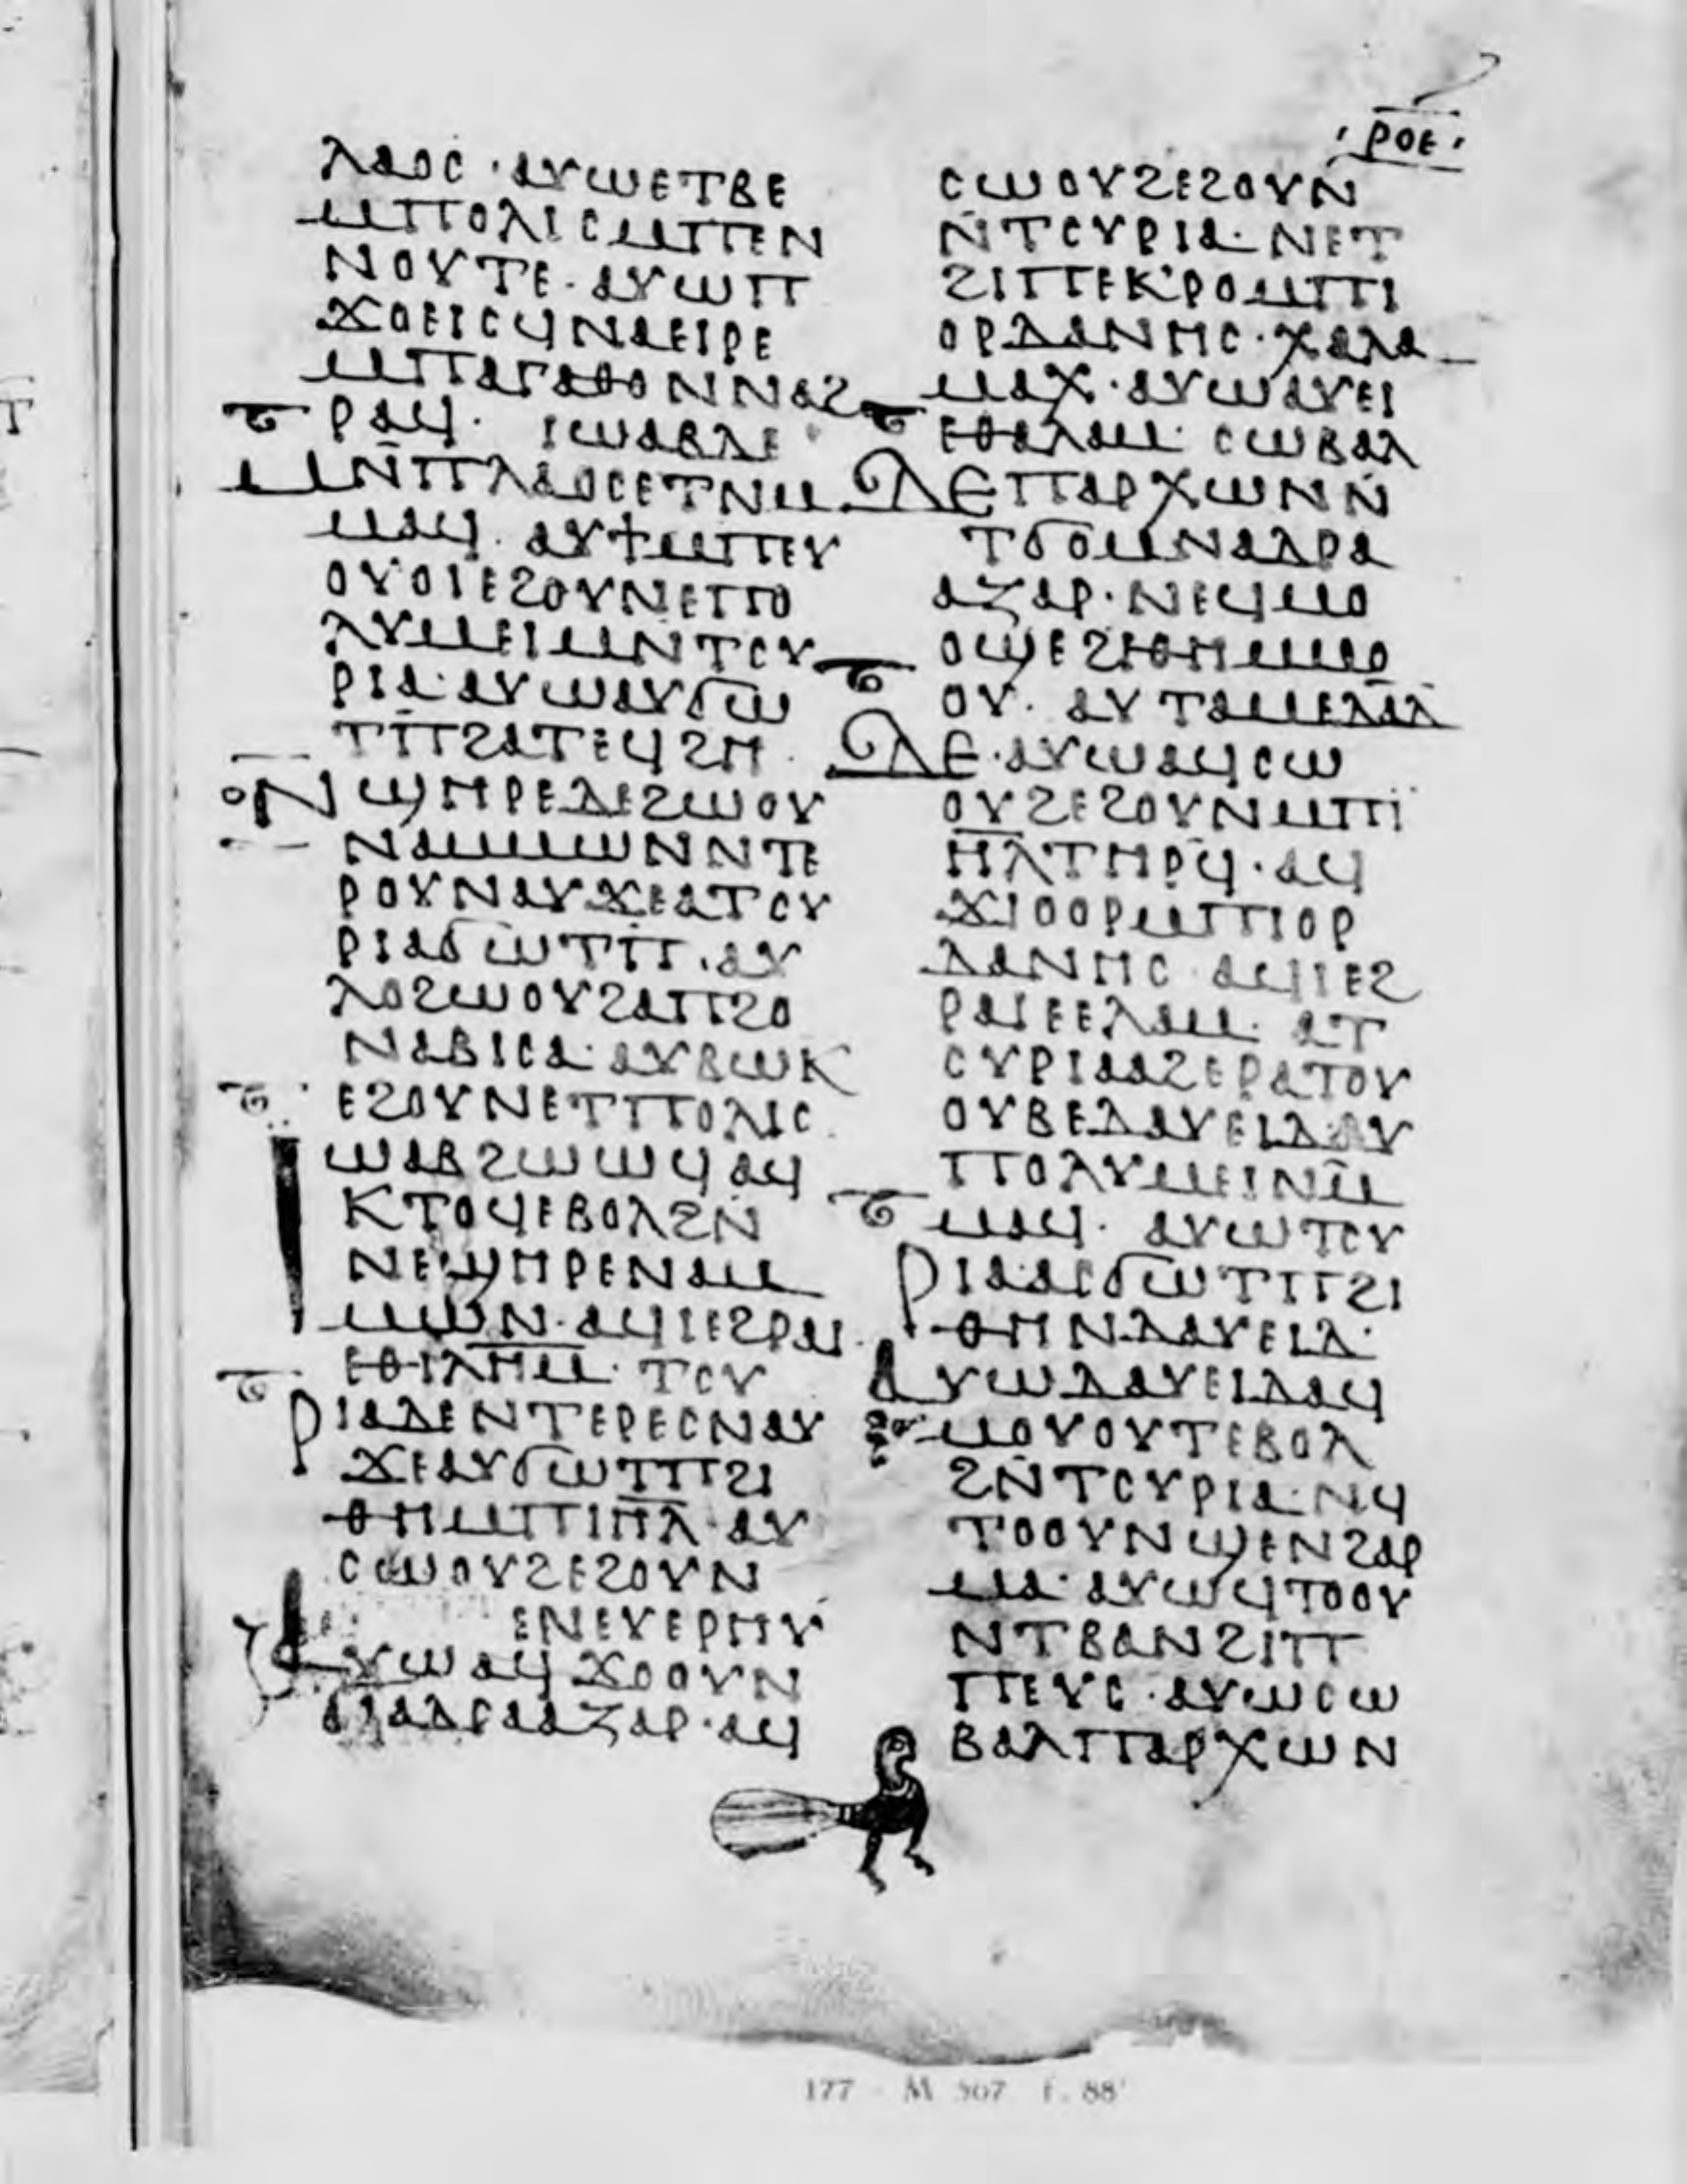 ⲣⲟⲉ
ⲗⲁⲟⲥ · ⲁⲩⲱⲉⲧⲃⲉ
ⲙⲡⲟⲗⲓⲥⲙⲡⲉⲛ
ⲛⲟⲩⲧⲉ · ⲁⲩⲱⲡ
ϫⲟⲉⲓⲥϥⲛⲁⲉⲓⲣⲉ
ⲙⲡⲁⲅⲁⲑⲟⲛⲛⲁϩ
ⲣⲁϥ · ⲓⲱⲁⲃⲇⲉ
ⲙⲛⲡⲗⲁⲟⲥⲉⲧⲛⲙ
ⲙⲁϥ · ⲁⲩϯⲙⲡⲉⲩ
ⲟⲩⲟⲓⲉϩⲟⲩⲛⲉⲡⲟ
ⲗⲩⲙⲉⲓⲙⲛⲧⲥⲩ
ⲣⲓⲁ · ⲁⲩⲱⲁⲩϭⲱ
ⲧⲡϩⲁⲧⲉϥϩⲏ ·
ⲛϣⲏⲣⲉⲇⲉϩⲱⲟⲩ
ⲛⲁⲙⲙⲱⲛⲛⲧⲉ
ⲣⲟⲩⲛⲁⲩϫⲉⲁⲧⲥⲩ
ⲣⲓⲁϭⲱⲧⲡ · ⲁⲩ
ⲗⲟϩⲱⲟⲩϩⲁⲡϩⲟ
ⲛⲁⲃⲓⲥⲁ · ⲁⲩⲃⲱⲕ
ⲉϩⲟⲩⲛⲉⲧⲡⲟⲗⲓⲥ ·
ⲓⲱⲁⲃϩⲱⲱϥⲁϥ
ⲕⲧⲟϥⲉⲃⲟⲗϩⲛ
ⲛⲉϣⲏⲣⲉⲛⲁⲙ
ⲙⲱⲛ · ⲁϥⲓⲉϩⲣⲁⲓ
ⲉⲑⲓⲗⲏⲙ · ⲧⲥⲩ
ⲣⲓⲁⲇⲉⲛⲧⲉⲣⲉⲥⲛⲁⲩ
ϫⲉⲁⲩϭⲱⲧⲡϩⲓ
ⲑⲏⲙⲡⲓⲏⲗ · ⲁⲩ
ⲥⲱⲟⲩϩⲉϩⲟⲩⲛ
ⲉⲛⲉⲩⲉⲣⲏⲩ
ⲁⲩⲱⲁϥϫⲟⲟⲩⲛ
ϭⲓⲁⲇⲣⲁⲁⲍⲁⲣ · ⲁϥ
ⲥⲱⲟⲩϩⲉϩⲟⲩⲛ
ⲛⲧⲥⲩⲣⲓⲁ · ⲛⲉⲧ
ϩⲓⲡⲉⲕⲣⲟⲙⲡⲓ
ⲟⲣⲇⲁⲛⲏⲥ · ⲭⲁⲗⲁ
ⲙⲁⲭ · ⲁⲩⲱⲁⲩⲉⲓ
ⲉⲑⲁⲗⲁⲙ · ⲥⲱⲃⲁⲗ
ⲇⲉⲡⲁⲣⲭⲱⲛⲛ
ⲧϭⲟⲙⲛⲁⲇⲣⲁ
ⲁⲍⲁⲣ · ⲛⲉϥⲙⲟ
ⲟϣⲉϩⲓⲑⲏⲙⲙⲟ
ⲟⲩ · ⲁⲩⲧⲁⲙⲉⲇⲁⲇ
ⲇⲉ · ⲁⲩⲱⲁϥⲥⲱ
ⲟⲩϩⲉϩⲟⲩⲛⲙⲡⲓ
ⲏⲗⲧⲏⲣϥ · ⲁϥ
ϫⲓⲟⲟⲣⲙⲡⲓⲟⲣ
ⲇⲁⲛⲏⲥ · ⲁϥⲓⲉϩ
ⲣⲁⲓⲉⲉⲗⲁⲙ · ⲁⲧ
ⲥⲩⲣⲓⲁⲁϩⲉⲣⲁⲧⲟⲩ
ⲟⲩⲃⲉⲇⲁⲩⲉⲓⲇⲁⲩ
ⲡⲟⲗⲩⲙⲉⲓⲛⲙ
ⲙⲁϥ · ⲁⲩⲱⲧⲥⲩ
ⲣⲓⲁⲁⲥϭⲱⲧⲡϩⲓ
ⲑⲏⲛⲇⲁⲩⲉⲓⲇ ·
ⲁⲩⲱⲇⲁⲩⲉⲓⲇⲁϥ
ⲙⲟⲩⲟⲩⲧⲉⲃⲟⲗ
ϩⲛⲧⲥⲩⲣⲓⲁ · ⲛϥ
ⲧⲟⲟⲩⲛϣⲉⲛϩⲁⲣ
ⲙⲁ · ⲁⲩⲱϥⲧⲟⲟⲩ
ⲛⲧⲃⲁⲛϩⲓⲡ
ⲡⲉⲩⲥ · ⲁⲩⲱⲥⲱ
ⲃⲁⲗⲡⲁⲣⲭⲱⲛ
177 - M 567 f. 88ʳ